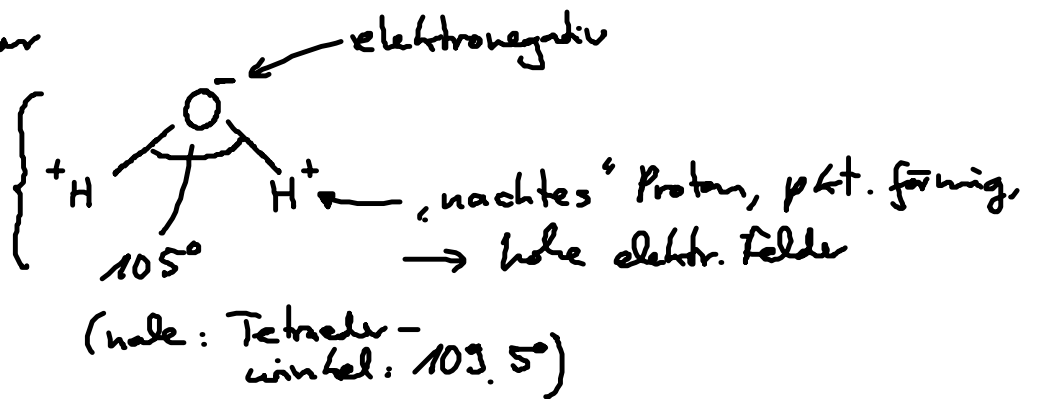 elektronegativ
O⁻
⁺H H⁺
„nacktes“ Proton, pkt. förmig,
→ hohe elektr. Felder
105°
(nahe: Tetraeder-
winkel: 109.5°)